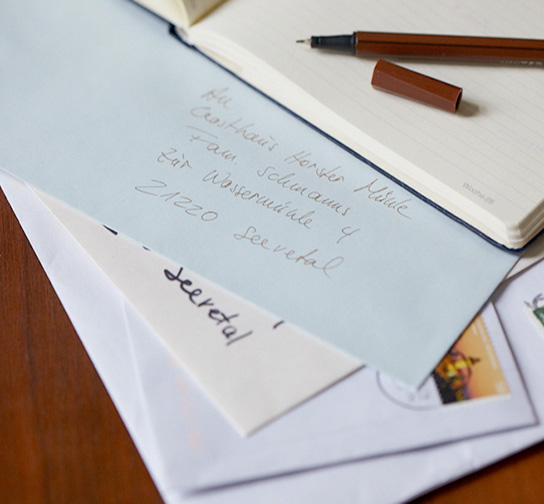 An
Gasthaus Horster Mühle
Fam Schmanns
Zur Wassermühle 4
21220 Seevetal
Seevetal